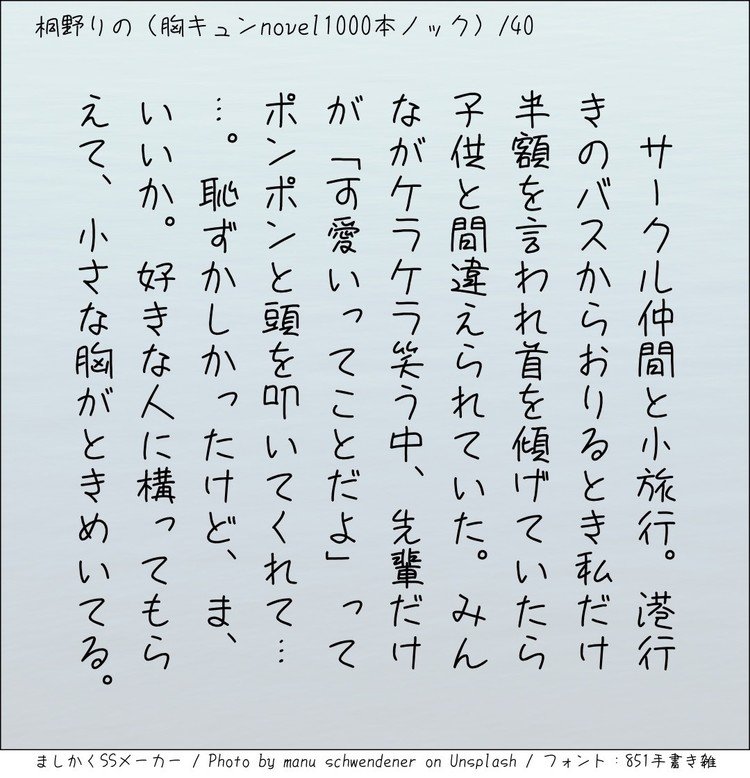 桐野りの(胸キュンnovel1000本ノック)/40
サークル仲間と小旅行。港行
きのバスからおりるとき私だけ
半額を言われ首を傾げていたら
子供と間違えられていた。みん
ながケラケラ笑う中、先輩だけ
が「可愛いってことだよ」って
ポンポンと頭を叩いてくれて…
…。恥ずかしかったけど、ま、
いいか。好きな人に構ってもら
えて、小さな胸がときめいてる。
ましかくSSメーカー / Photo by manu schwendener on Unsplash / フォント:851手書き雑